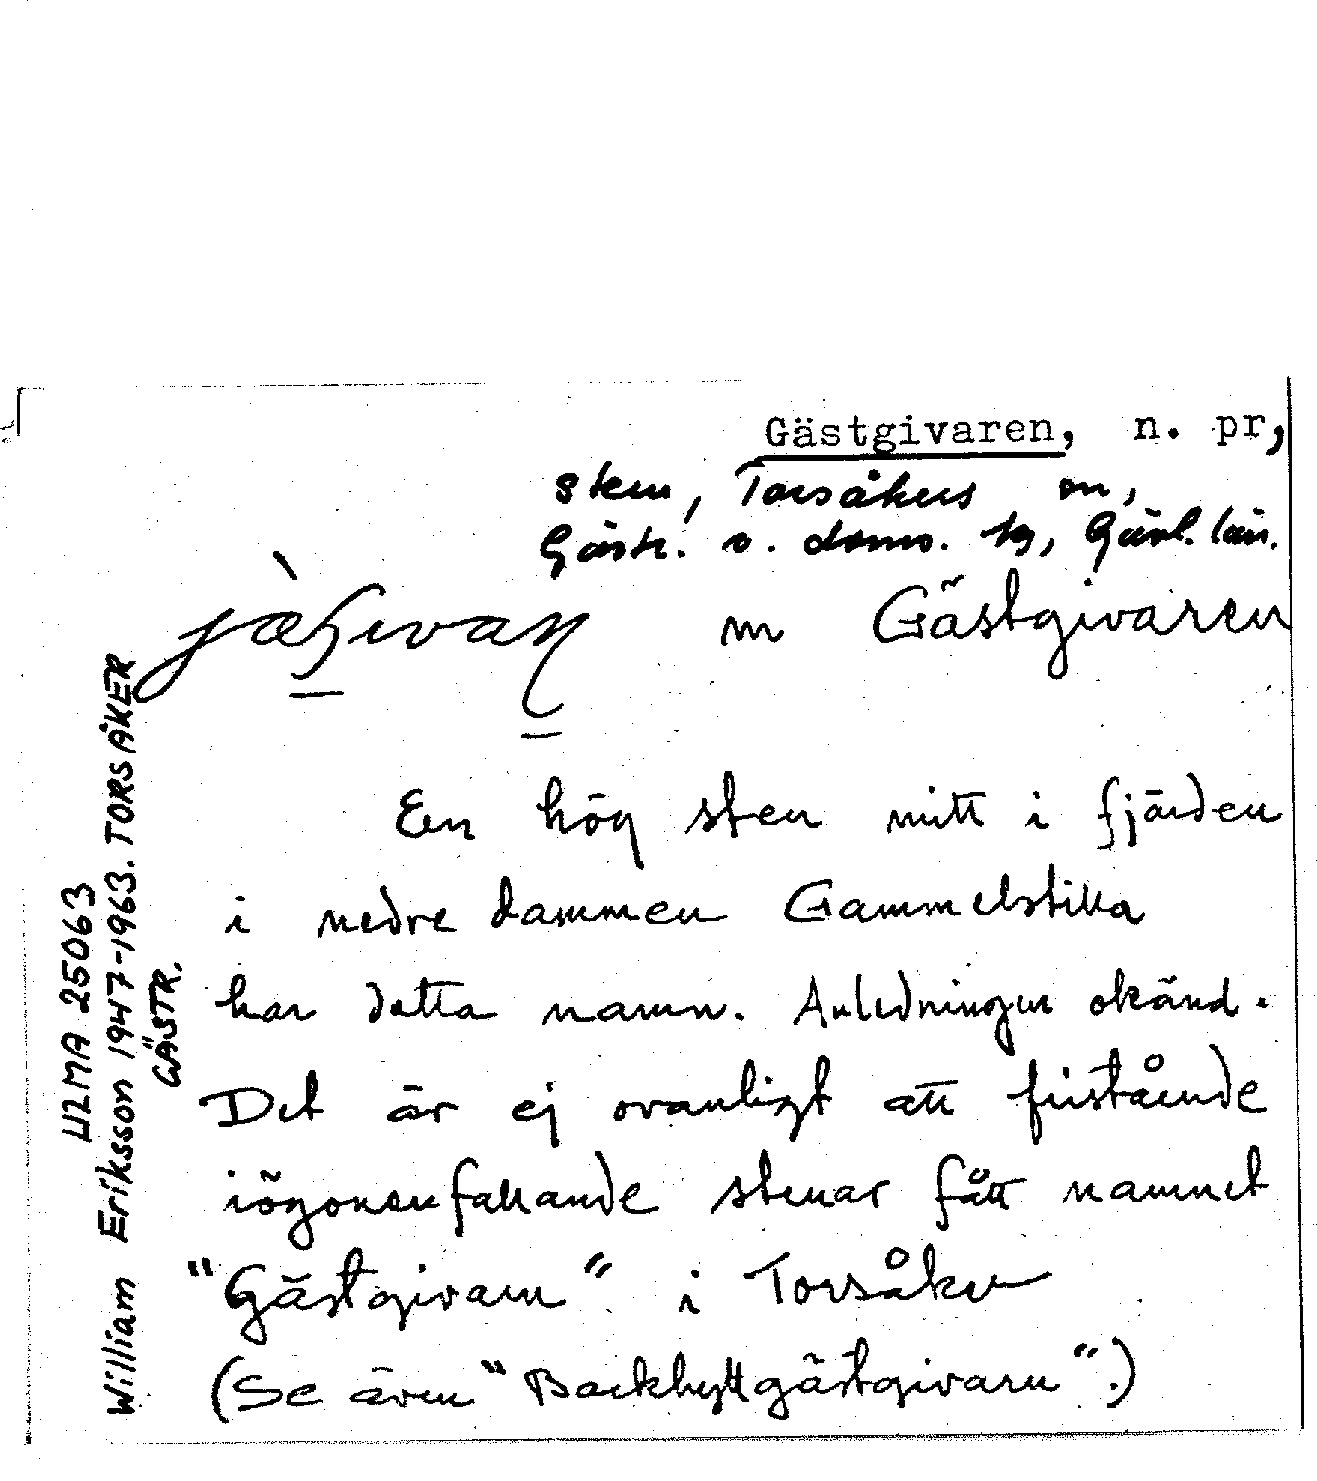 Gästgivaren, n. pr,
sten, Torsåkers sn,
Gästr. ö. doms. tg, Gävl. län.
m Gästgivaren
En hög sten mitt i fjärden
i nedre dammen Gammelstilla
har detta namn. Anledningen okänd.
Det är ej ovanligt att fristående
iögonenfallande stenar fått namnet
"Gästgivarn" i Torsåker
(Se även "Backhyttgästgivarn".)
ULMA 25063
William Eriksson 1947-1963. TORSÅKER
GÄSTR.